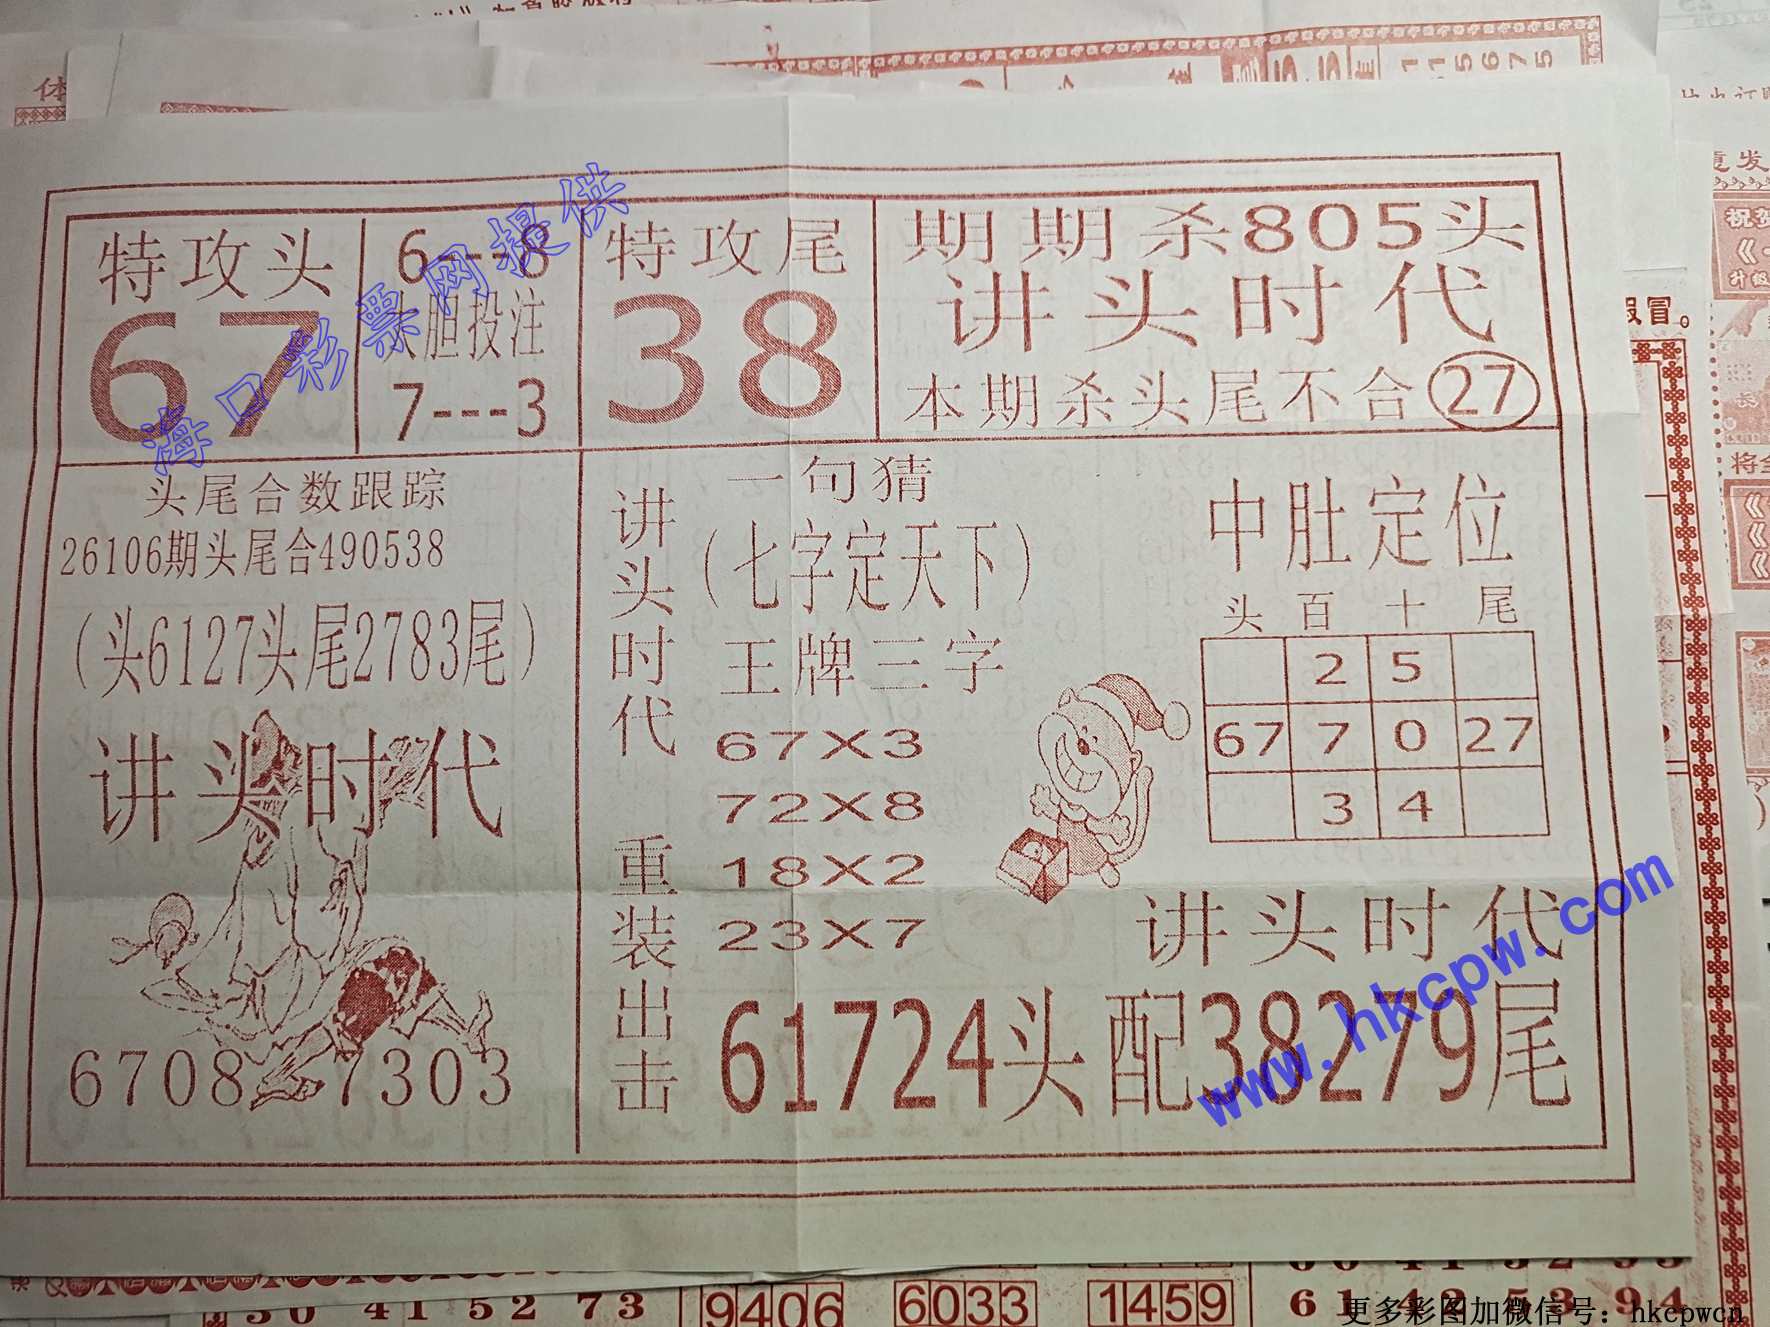 特攻头
67
6---8
大胆投注
7---3
特攻尾
38
期期杀805头
讲头时代
本期杀头尾不合27
头尾合数跟踪
26106期头尾合490538
(头6127头尾2783尾)
讲头时代
6708 7303
讲头时代
重装出击
一句猜
(七字定天下)
王牌三字
67X3
72X8
18X2
23X7
中肚定位
头 百 十 尾
2 5
67 7 0 27
3 4
讲头时代
61724头配38279尾
海口彩票网提供
www.hkcpw.com
假冒。
30 41 52 73
9406
6033
1459
更多彩图加微信号：hkcpwcn